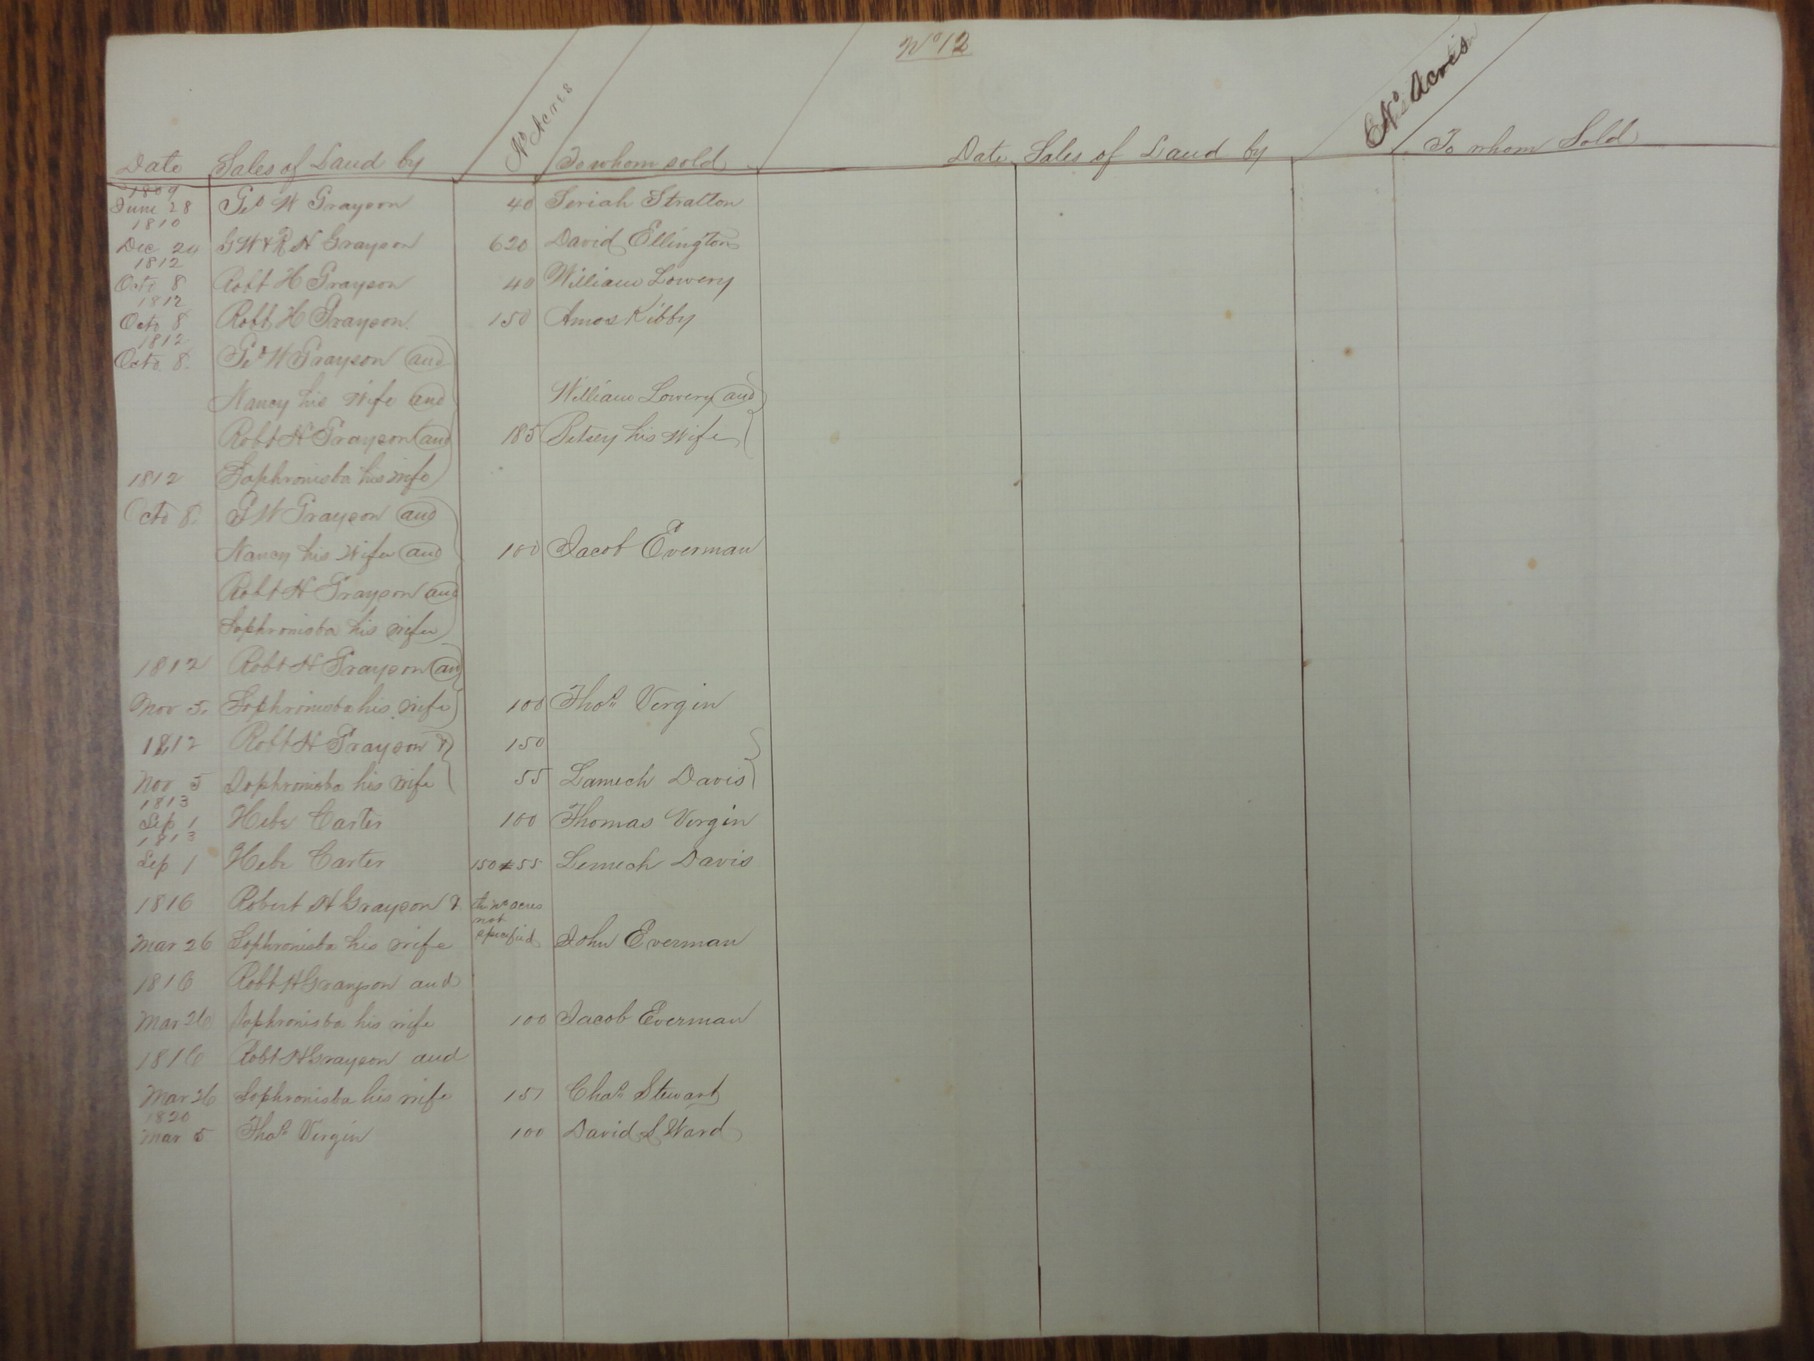 No 12
Date Sales of Land by No Acres To whom sold Date Sales of Land by No Acres To whom Sold
1809
June 28 Geo W Grayson 40 Seriah Stratton
1810
Dec 24 GW & R H Grayson 620 David Ellington
1812
Octo 8 Robt H Grayson 40 William Lowery
1812
Octo 8 Robt H Grayson 150 Amos Kibby
1812
Octo 8. Geo W Grayson and
Nancy his Wife and William Lowery and
Robt H Grayson and 185 Betsey his Wife
1812 Sophronisba his wife
Octo 8. G W Grayson and
Nancy his Wife and 100 Jacob Everman
Robt H Grayson and
Sophronisba his wife
1812 Robt H Grayson and
Nov 5. Sophronisba his wife 100 Thos Virgin
1812 Robt H Grayson & 150
Nov 5 Sophronisba his wife 55 Lamech Davis
1813
Sep 1 Hebe Carter 100 Thomas Virgin
1813
Sep 1 Hebe Carter 150 & 55 Lemech Davis
1816 Robert H Grayson & the No acres
not
Mar 26 Sophronisba his wife specified John Everman
1816 Robt H Grayson and
Mar 26 Sophronisba his wife 100 Jacob Everman
1816 Robt H Grayson and
Mar 26 Sophronisba his wife 151 Chas Stewart
1820
Mar 5 Thos Virgin 100 David S Ward